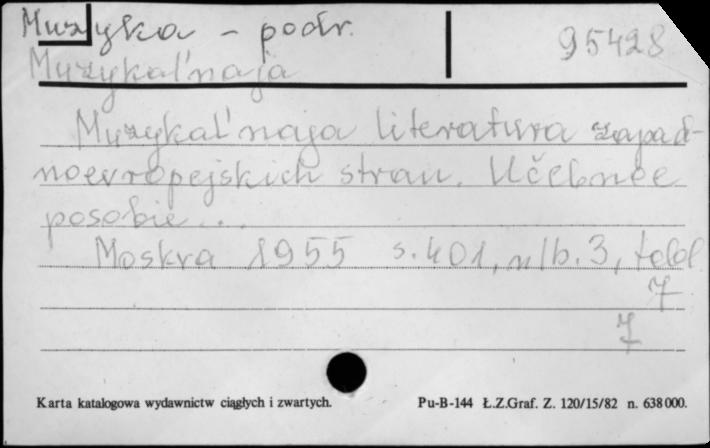 Muzyka - podr.
95428
Muzykal'naja
Muzykal'naja literatura zapad-
noevropejskich stran. Učebnoe
posobie...
Moskva 1955 s. 401, nlb. 3, tabl.
7
7
Karta katalogowa wydawnictw ciągłych i zwartych. Pu-B-144 Ł.Z.Graf. Z. 120/15/82 n. 638000.